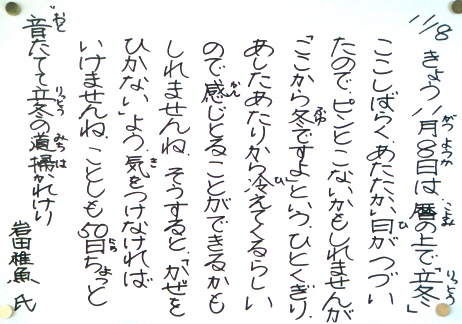 11/8 きょう11月8日は、暦の上で「立冬」
ここしばらく、あたたかい日がつづい
たので、ピンとこないかもしれませんが
「ここから冬ですよ」という、ひとくぎり。
あしたあたりから冷えてくるらしい
ので感じとることができるかも
しれませんね。そうすると、「かぜを
ひかない」よう、気をつけなければ
いけませんね。ことしも50日ちょっと
音たてて立冬の道掃かれけり
岩田樵魚 氏